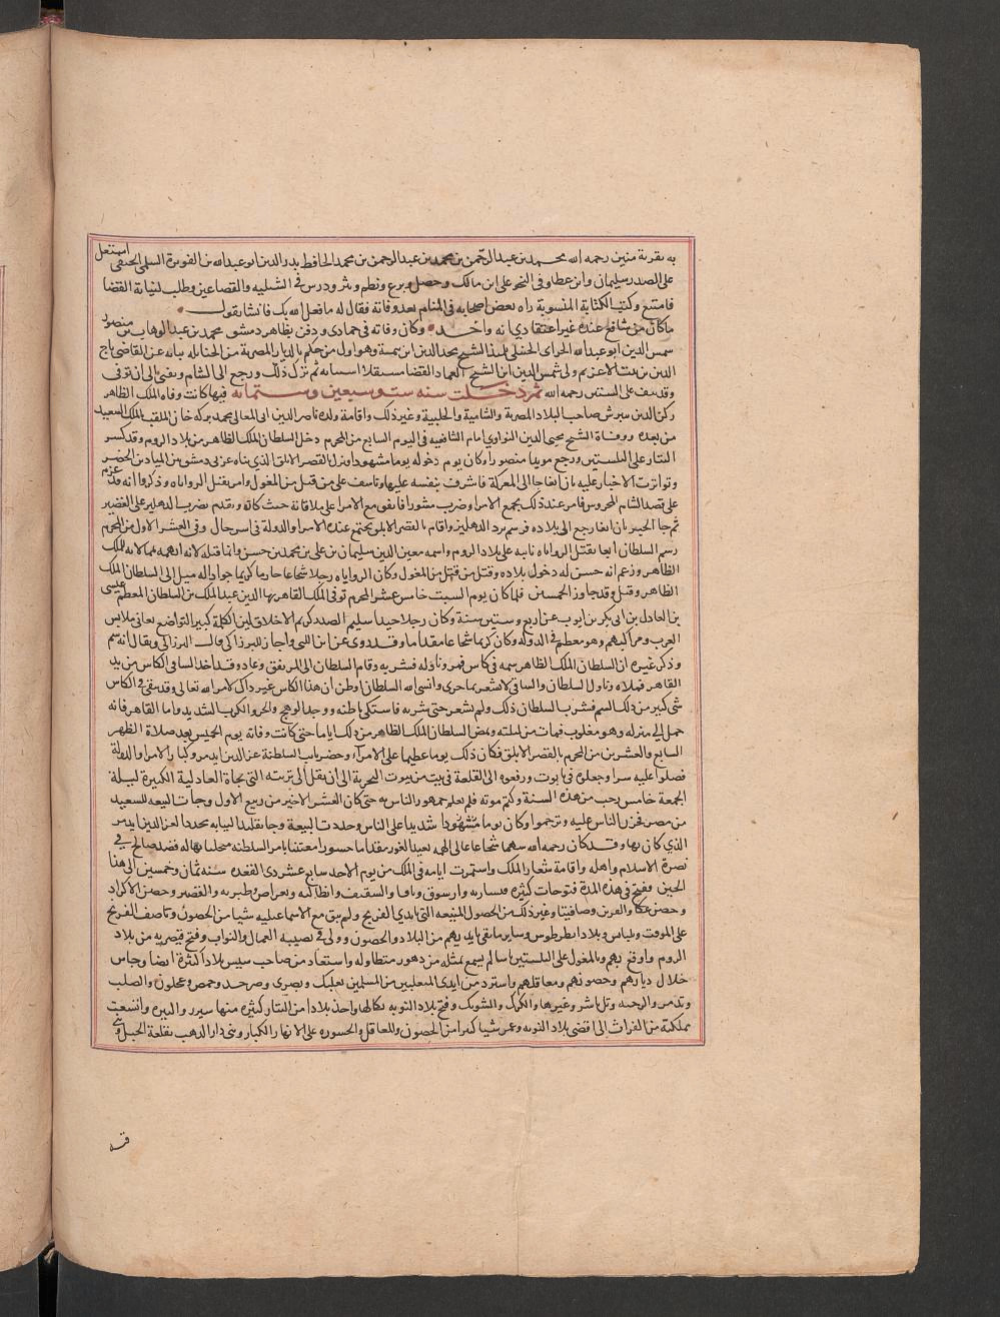 به بقرية منين رحمه الله محمد بن عبد الرحمن بن محمد بن عبد الرحمن بن محمد الحافظ بدر الدين ابو عبد الله بن الفويرة السلمى الحنفى اشتغل
على الصدر سليمان وابن عطا وفى النحو على ابن مالك وحصل وبرع ونظم ونثر ودرس فى الشبليه والقصاعين وطلب لنيابة القضا
فامتنع وكتب الكتابة المنسوبة راه بعض اصحابه فى المنام بعد وفاته فقال له ما فعل الله بك فانشا يقول
ما كان من شافع عنده غير اعتقادى انه واحد وكان وفاته فى جمادى ودفن بظاهر دمشق محمد بن عبد الوهاب بن منصور
شمس الدين ابو عبد الله الحرانى الحنبلى تلميذ الشيخ مجد الدين ابن تيمية وهو اول من حكم بالديار المصرية من الحنابلة نيابة عن القاضى تاج
الدين بن بنت الاعز ثم ولى شمس الدين ابن الشيخ العماد القضا مستقلا استنابه ثم ترك ذلك ورجع الى الشام الى ان توفى
وقد نيف على الستين رحمه الله ثم دخلت سنه ست وسبعين وستمائه فيها كانت وفاه الملك الظاهر
ركن الدين بيبرس صاحب البلاد المصرية والشامية والحلبية وغير ذلك واقامة ولده ناصر الدين ابى المعالى محمد بركه خان الملقب بالملك السعيد
من بعده ووفاة الشيخ محيى الدين النواوى امام الشافعيه فى اليوم السابع من المحرم دخل السلطان الملك الظاهر من بلاد الروم وقد كسر
التتار على البلستين ورجع مويدا منصورا وكان يوم دخوله يوما مشهودا ونزل بالقصر الابلق الذى بناه غربى دمشق بين الميادين الخضر
وتواترت الاخبار عليه بان ابغا جا الى المعركة فاشرف بنفسه عليها وتاسف على من قتل من المغول وامر بقتل البرواناه وذكروا انه قد عزم
على قصد الشام المحروس فامر عند ذلك بجمع الامرا وضرب مشورا فاتفق مع الامرا على ملاقاته حيث كان وتقدم بضرب الدهليز على القصير
ثم جا الخبر بان ابغا رجع الى بلاده فرسم برد الدهليز واقام بالقصر الابلق يجتمع عنده الامرا والدولة فى اسر حال وفى العشر الاول من المحرم
رسم السلطان ابغا بقتل البرواناه نايبه على بلاد الروم واسمه معين الدين سليمان بن على بن محمد بن حسن وانما قتله لانه اتهمه بممالاته للملك
الظاهر وزعم انه حسن له دخول بلاده وقتل من قتل من المغول وكان البرواناه رجلا شجاعا حازما كريما جوادا له ميل الى السلطان الملك
الظاهر وقتل وقد جاوز الخمسين فلما كان يوم السبت خامس عشر المحرم توفى الملك القاهر بها الدين عبد الملك بن السلطان المعظم عيسى
بن العادل بن ابى بكر بن ايوب عن اربع وستين سنة وكان رجلا جيدا سليم الصدر كريم الاخلاق لين الكلمة كبير التواضع يعانى ملابس
العرب ومراكبهم وهو معظم فى الدولة وكان كريما شجاعا مقداما وقد روى عن ابن اللتى واجاز للبرزالى قال البرزالى ويقال انه سم
وذكر غيره ان السلطان الملك الظاهر سمه فى كاس خمر وناوله فشربه وقام السلطان الى المرتفق وعاد وقد اخذ الساقى الكاس من يد
القاهر فملاه وناول السلطان والساقى لا يشعر بما جرى وانسى الله السلطان وظن ان هذا الكاس غير ذاك لامر الله تعالى وقد بقى فى الكاس
شى كبير من ذلك السم فشرب السلطان ذلك ولم يشعر حتى شربه فاشتكى باطنه ووجد الوهج والحر والكرب الشديد واما القاهر فانه
حمل الى منزله وهو مغلوب فمات من ليلته ومرض السلطان الملك الظاهر من ذلك اياما حتى كانت وفاته يوم الخميس بعد صلاة الظهر
السابع والعشرين من المحرم بالقصر الابلق فكان ذلك يوما عظيما على الامراء وحضر نايب السلطنة عز الدين ايدمر وكبار الامرا والدولة
فصلوا عليه سرا وجعلوه فى تابوت ورفعوه الى القلعة فى بيت من بيوت البحرية الى ان نقل الى تربته التى تجاة العادلية الكبيرة ليلة
الجمعة خامس رجب من هذه السنة وكتم موته فلم يعلم جمهور الناس به حتى كان العشر الاخير من ربيع الاول وجات البيعه للسعيد
من مصر فحزن الناس عليه وترحموا وكان يوما مشهودا شديدا على الناس وجددت البيعة وجا تقليد النيابه مجددا لعز الدين ايدمر
الذى كان بها وقد كان رحمه الله شهما شجاعا عالى الهمه بعيد الغور مقداما جسورا معتنيا بامر السلطنه متحليا بها له قصد صالح فى
نصرة الاسلام واهله واقامة شعار الملك واستمرت ايامه فى الملك من يوم الاحد سابع عشر ذى القعده سنه ثمان وخمسين الى هذا
الحين وفتح فى هذه المدة فتوحات كثيرة قيساريه وارسوف ويافا والشقيف وانطاكيه وبغراص وطبريه والقصير وحصن الاكراد
وحصن عكا والغرين وصافيتا وغير ذلك من الحصول المنيعه التى بايدى الفرنج ولم يبق مع الاسماعيليه شيا من الحصون وناصف الفرنج
على المرقب وبلنياس وبلاد انطرطوس وساير ما بقى بايديهم من البلاد والحصون وولى فى نصيبه العمال والنواب وفتح قيصريه من بلاد
الروم واوقع بهم وبالمغول على البلستين باسا لم يسمع بمثله من دهور متطاوله واستعاد من صاحب سيس بلادا كثيرة ايضا وجاس
خلال ديارهم وحصونهم ومعاقلهم واسترد من ايدى المتغلبين من المسلمين بعلبك وبصرى وصرخد وحمص وعجلون والصلت
وتدمر والرحبه وتل باشر وغيرها والكرك والشوبك وفتح بلاد النوبه بكالها واخذ بلادا من التتار كثيرة منها سيرر والبيره واتسعت
مملكته من الفرات الى اقصى بلاد النوبه وعمر شيا كثيرا من الحصون والمعاقل والجسوره على الانهار الكبار وبنى دار الذهب بقلعة الجبل وبنى
قبه